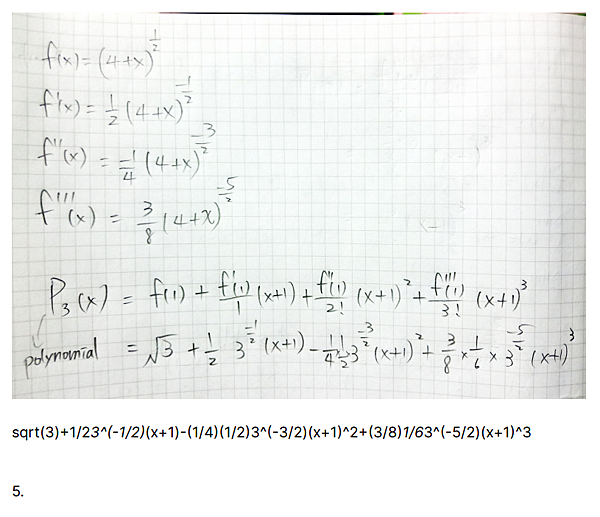 f(x) = (4+x)^{1/2}
f'(x) = 1/2 (4+x)^{-1/2}
f''(x) = -1/4 (4+x)^{-3/2}
f'''(x) = 3/8 (4+x)^{-5/2}
P₃(x) = f(1) + f'(1)/1 (x+1) + f''(1)/2! (x+1)² + f'''(1)/3! (x+1)³
polynomial = √3 + 1/2 3^{-1/2} (x+1) - 1/4 1/2 3^{-3/2} (x+1)² + 3/8 × 1/6 × 3^{-5/2} (x+1)³
sqrt(3)+1/23^(-1/2)(x+1)-(1/4)(1/2)3^(-3/2)(x+1)^2+(3/8)1/63^(-5/2)(x+1)^3
5.